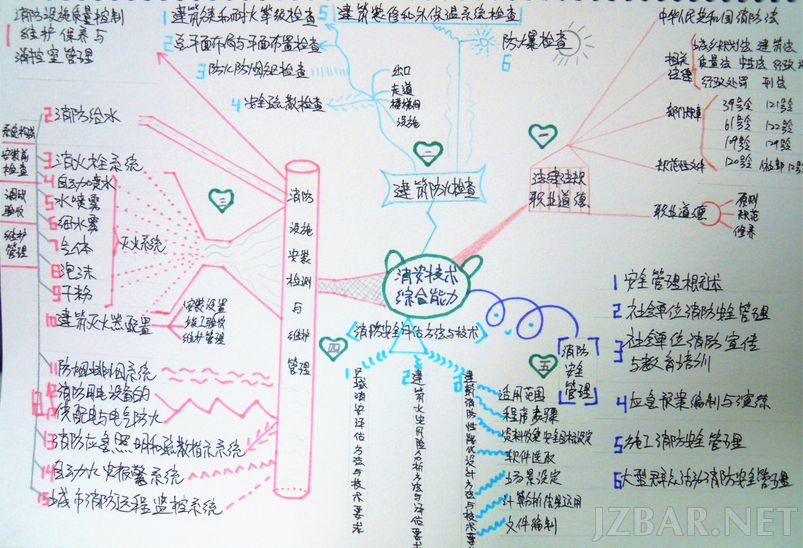 消防安全技术
综合能力
一
法律法规
职业道德
中华人民共和国消防法
相关
法律
城乡规划法 建筑法
行政处罚 刑法
部门规章
39号令 121号令
61号令 122号令
109号令 129号令
规范性文件
职业道德
原则
规范
修养
二
建筑防火检查
1 建筑类和耐火等级检查
2 总平面布局与平面布置检查
3 防火防烟分区检查
4 安全疏散检查
出口
走道
楼梯间
设施
5
6
防爆检查
三
消防
设施
安装
检测
与
维护
管理
1
消防设施质量控制
维护保养与
消控室管理
2 消防给水
3 消火栓系统
4 自动喷水
5 水喷雾
6 细水雾
7 气体
8 泡沫
9 干粉
灭火系统
10 建筑灭火器配置
安装设置
竣工验收
维护管理
11 防烟排烟系统
12 消防用电设备的
供配电与电气防火
13 消防应急照明和疏散指示系统
14 自动火灾报警系统
15 城市消防远程监控系统
系统构成
安装前
检查
调试
验收
维护
管理
四
消防安全评估方法与技术
1 区域消防安全评估方法与技术要求
2 建筑火灾风险分析方法与评估要求
3 建筑消防性能化设计方法与技术要求
适用范围
程序步骤
资料收集安全目标设定
软件选取
场景设定
计算分析结果运用
文件编制
五
消防
安全
管理
1 安全管理概述
2 社会单位消防安全管理
3 社会单位消防宣传
与教育培训
4 应急预案编制与演练
5 施工消防安全管理
6 大型群众活动消防安全管理
JZBAR.NET